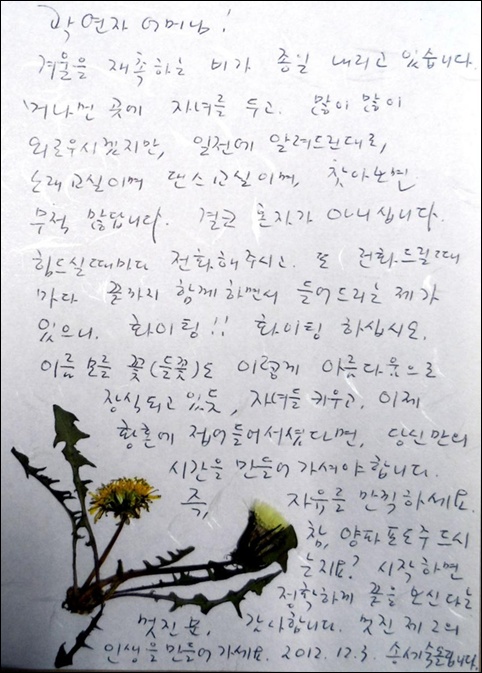 곽연자 어머님!
겨울을 재촉하는 비가 종일 내리고 있습니다.
머나먼 곳에 자녀를 두고. 많이 많이
외로우시겠지만, 일전에 알려드린대로,
노래교실이며 댄스교실이며, 찾아보면
무척 많답니다. 결코 혼자가 아니십니다.
힘드실때마다 전화해주시고. 또 전화드릴때
마다 끝까지 함께하면서 들어드리는 제가
있으니. 화이팅!! 화이팅 하십시오.
이름모를 꽃(들꽃)도 이렇게 아름다움으로
장식되고 있듯, 자녀들 키우고. 이제
황혼에 접어들어서셨다면, 당신만의
시간을 만들어 가셔야합니다.
즉, 자유를 만끽하세요.
참, 양파포도주 드시
는지요? 시작하면
정확하게 끝을 보신다는
멋진 분, 감사합니다. 멋진 제2의
인생을 만들어가세요. 2012.12.3. 송세숙올립니다.